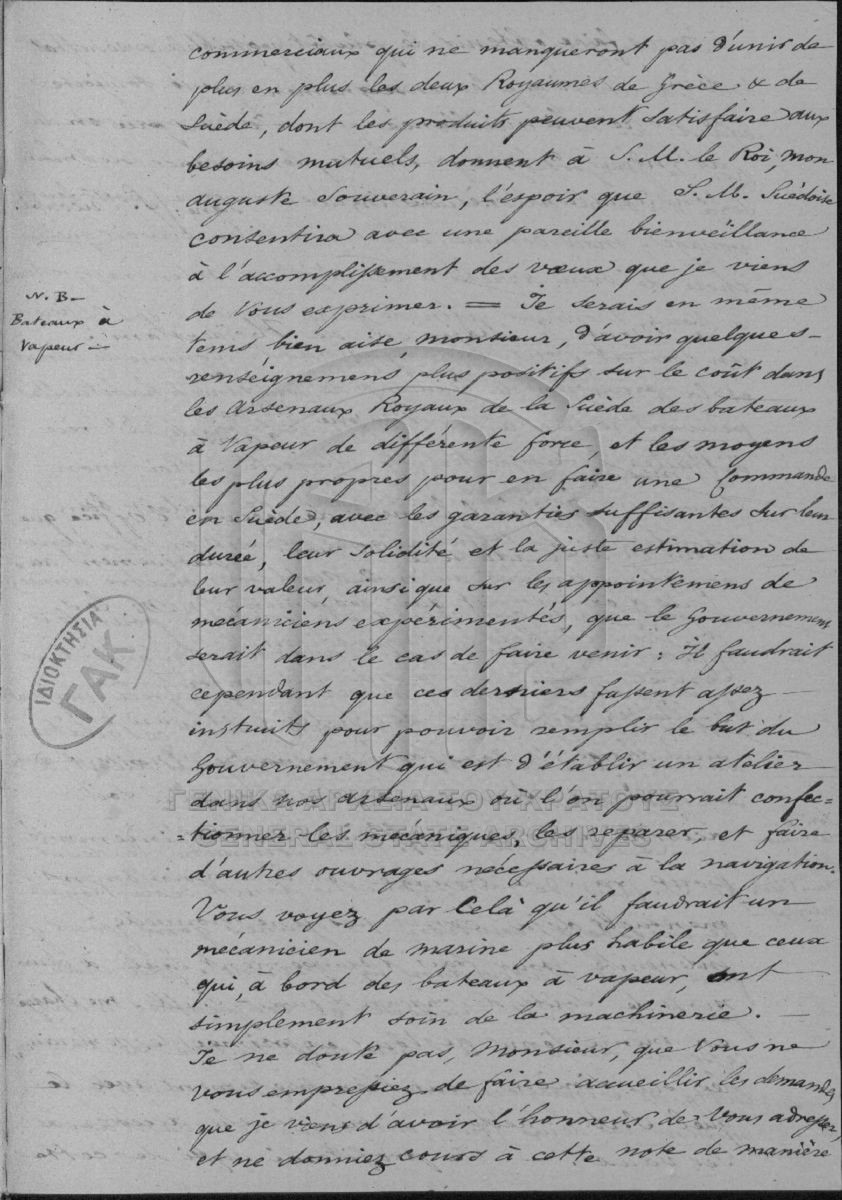 commerciaux qui ne manqueront pas d'unir de
plus en plus les deux Royaumes de Grèce & de
Suède, dont les produits peuvent satisfaire aux
besoins mutuels, donnent à S. M. le Roi, mon
auguste Souverain, l'espoir que S. M. Suédoise
consentira avec une pareille bienveillance
à l'accomplissement des vœux que je viens
de Vous exprimer. = Je serais en même
tems bien aise, monsieur, d'avoir quelques-
renséignemens plus positifs sur le coût dans
les Arsenaux Royaux de la Suède des bateaux
à Vapeur de différente force, et les moyens
les plus propres pour en faire une Commande
en Suède, avec les garanties suffisantes sur leur
durée, leur solidité et la juste estimation de
leur valeur, ainsi que sur les appointemens de
mécaniciens expérimentés, que le Gouvernement
serait dans le cas de faire venir : Il faudrait
cependant que ces derniers fussent assez —
instruits pour pouvoir remplir le but du
Gouvernement qui est d'établir un atelier
dans nos arsenaux où l'on pourrait confec=
=tionner les mécaniques, les reparer, et faire
d'autres ouvrages nécessaires à la navigation.
Vous voyez par celà qu'il faudrait un
mécanicien de marine plus habile que ceux
qui, à bord des bateaux à vapeur, ont
simplement soin de la machinerie. —
Je ne doute pas, Monsieur, que Vous ne
vous empressiez de faire accueillir les demandes
que je viens d'avoir l'honneur de Vous adresser,
et ne donniez cours à cette note de manière
N. B —
Bateaux à
Vapeur —
ΙΔΙΟΚΤΗΣΙΑ
ΓΑΚ
ΓΕΝΙΚΑ ΑΡΧΕΙΑ ΤΟΥ ΚΡΑΤΟΥΣ
GENERAL STATE ARCHIVES